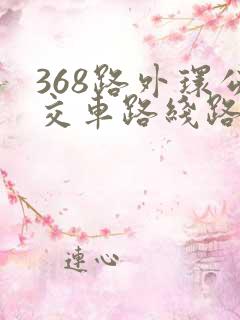 368路外环公
交車路线路
連心